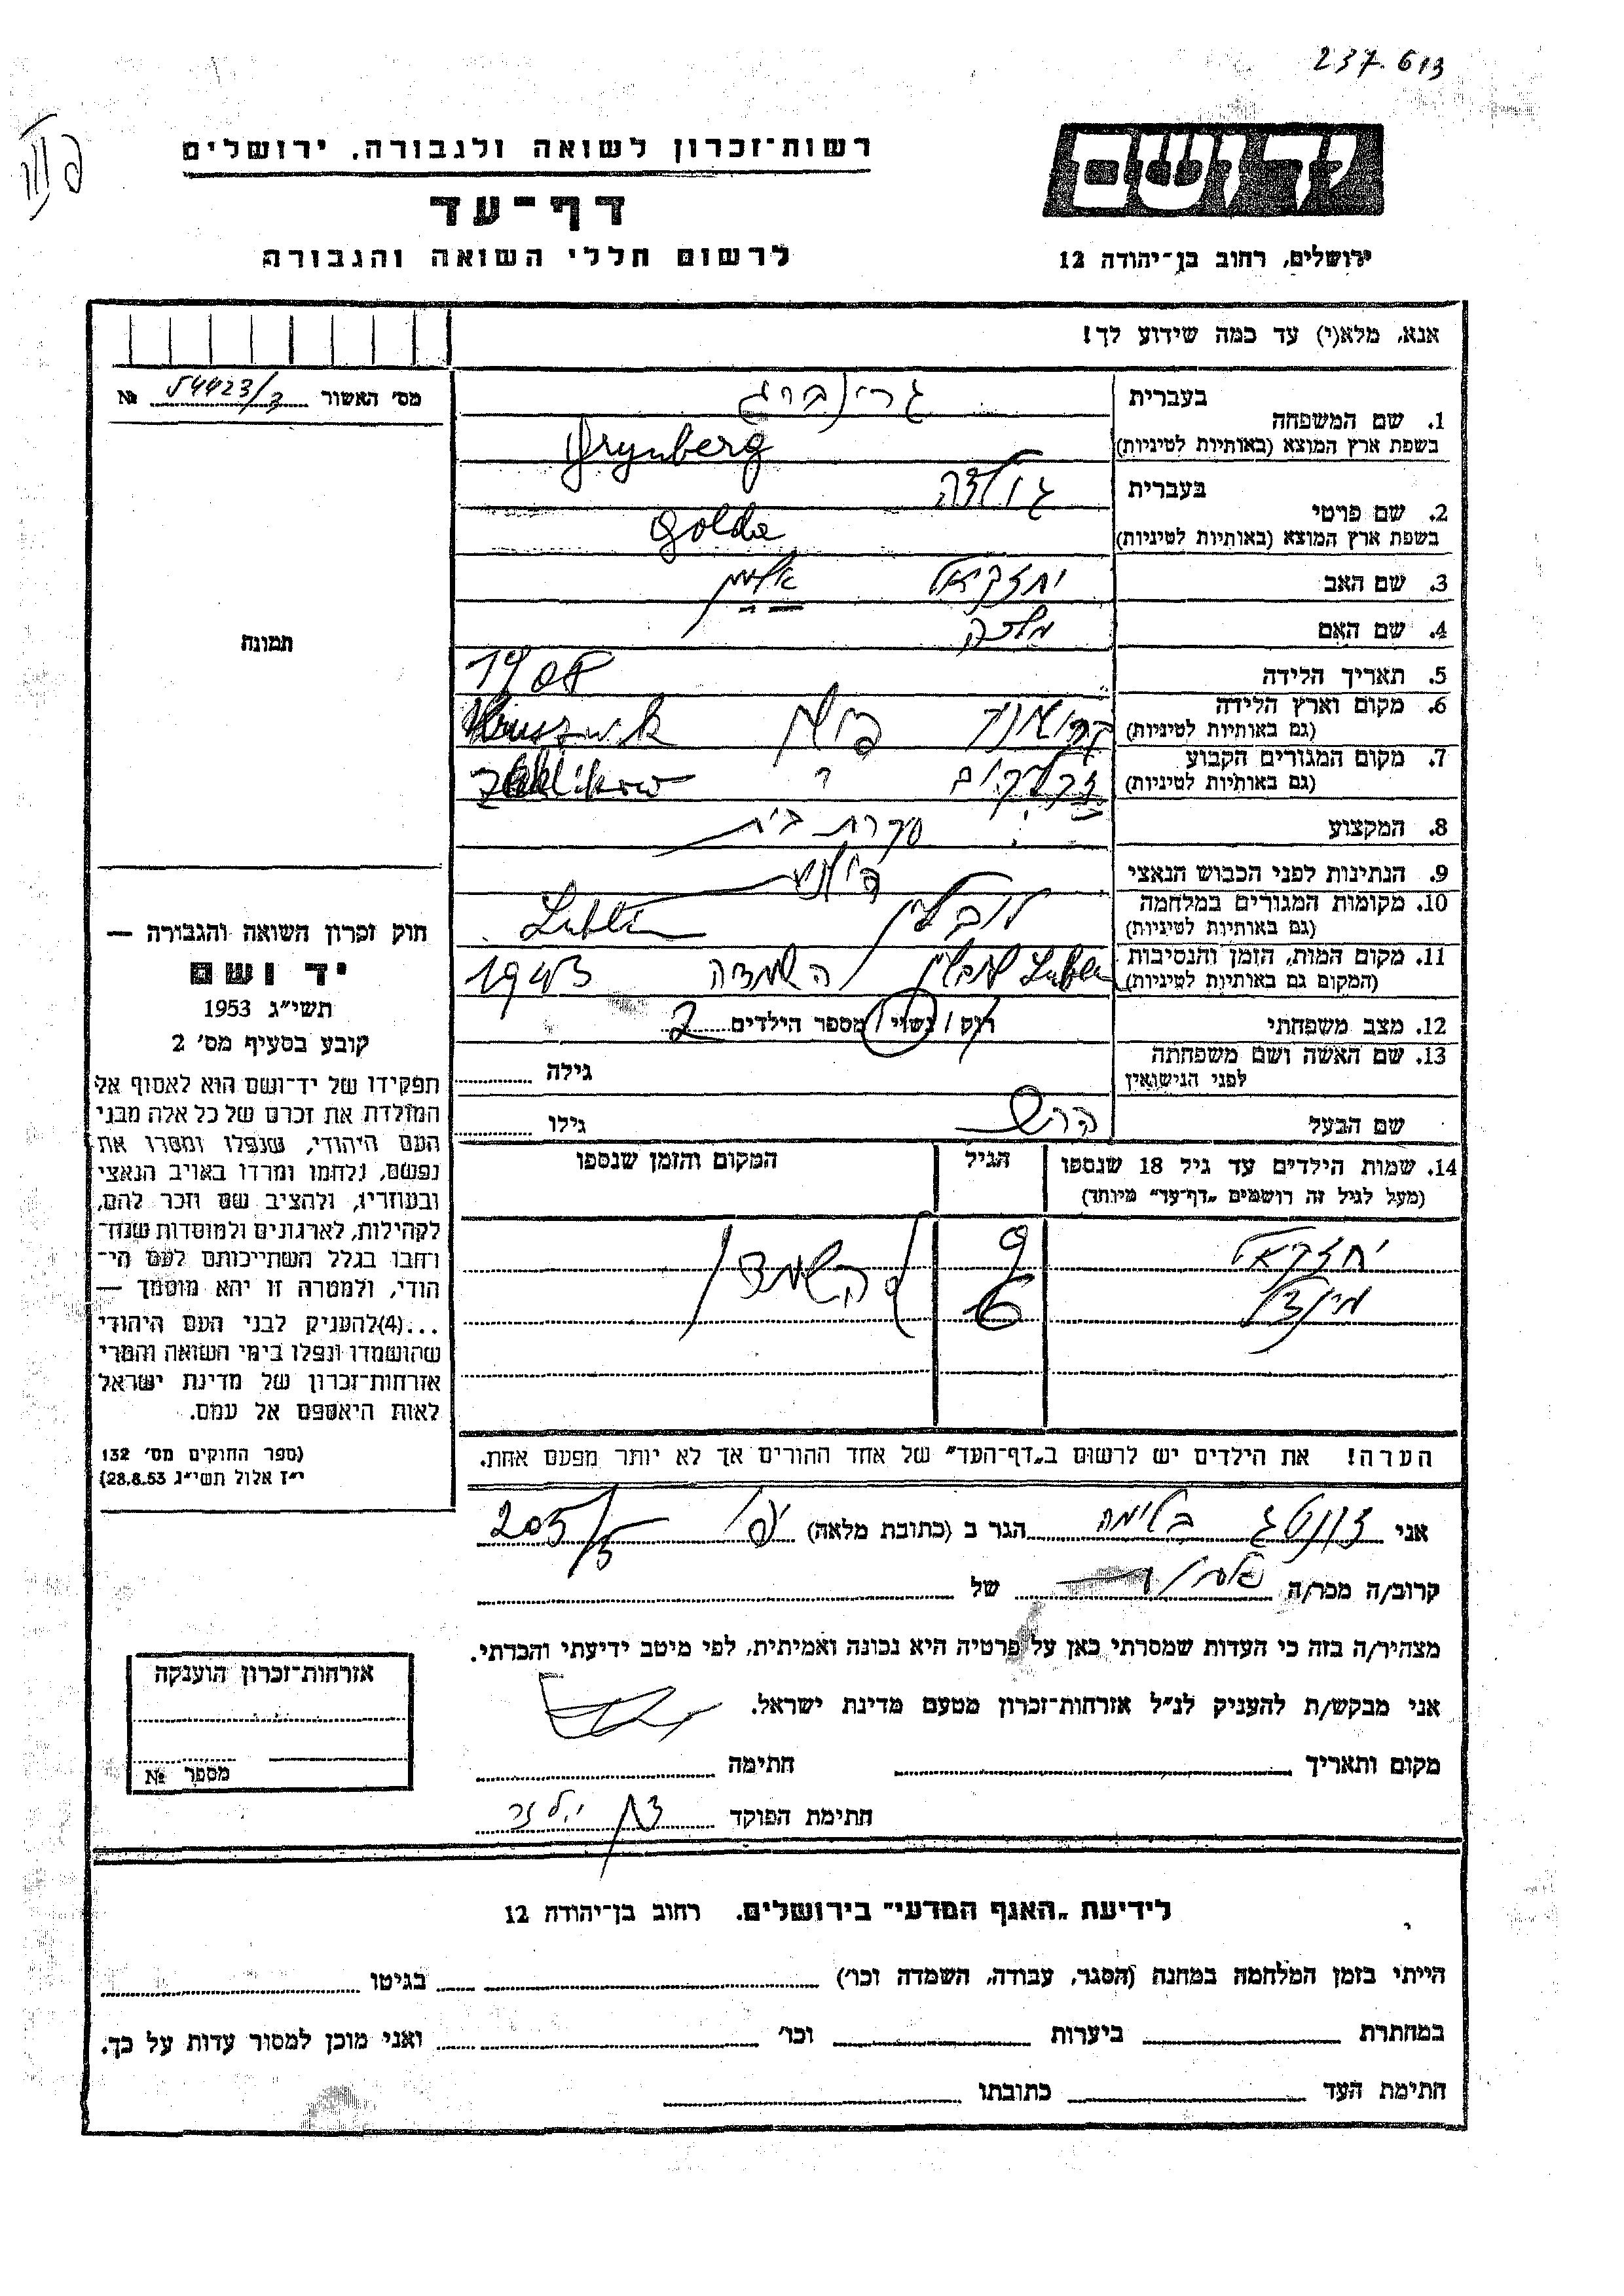 237.613
רשות־זכרון לשואה ולגבורה. ירושלים
יד ושם
דף־עד
לרשום חללי השואה והגבורה
ירושלים, רחוב בן־יהודה 12
אנא, מלא(י) עד כמה שידוע לך!
מס' האשור 54423/3 №
תמונה
1. שם המשפחה
בעברית גרינברג
בשפת ארץ המוצא (באותיות לטיניות) Grynberg
2. שם פרטי
בעברית גולדה
בשפת ארץ המוצא (באותיות לטיניות) Golda
3. שם האב יחזקאל
4. שם האם מלכה
5. תאריך הלידה 1908
6. מקום וארץ הלידה פולין
(גם באותיות לטיניות)
7. מקום המגורים הקבוע
(גם באותיות לטיניות) Zaklikow
8. המקצוע עקרת בית
9. הנתינות לפני הכבוש הנאצי פולנית
10. מקומות המגורים במלחמה לובלין Lublin
(גם באותיות לטיניות)
11. מקום המות, הזמן והנסיבות Lublin לובלין השמדה 1943
(המקום גם באותיות לטיניות)
12. מצב משפחתי רוק / נשוי / מספר הילדים 2
13. שם האשה ושם משפחתה
לפני הנישואין
גילה
שם הבעל הרש גילו
14. שמות הילדים עד גיל 18 שנספו הגיל המקום והזמן שנספו
(מעל לגיל זה רושמים „דף־עד" מיוחד)
יחזקאל 9 השמדה
מינדל 6
הערה! את הילדים יש לרשום ב„דף־העד" של אחד ההורים אך לא יותר מפעם אחת.
חוק זכרון השואה והגבורה —
יד ושם
תשי"ג 1953
קובע בסעיף מס' 2
תפקידו של יד־ושם הוא לאסוף אל
המולדת את זכרם של כל אלה מבני
העם היהודי, שנפלו ומסרו את
נפשם, נלחמו ומרדו באויב הנאצי
ובעוזריו, ולהציב שם וזכר להם,
לקהילות, לארגונים ולמוסדות שנח־
רחבו בגלל השתייכותם לעם הי־
הודי, ולמטרה זו יהא מוסמך —
...(4)להעניק לבני העם היהודי
שהושמדו ונפלו בימי השואה והמרי
אזרחות־זכרון של מדינת ישראל
לאות היאספם אל עמם.
(ספר החוקים מס' 132
י"ז אלול תשי"ג 28.8.53)
אני זונטג בלימה הגר ב (כתובת מלאה) יפו 203/5
קרוב/ה מכר/ה של
מצהיר/ה בזה כי העדות שמסרתי כאן על פרטיה היא נכונה ואמיתית, לפי מיטב ידיעתי והכרתי.
אני מבקש/ת להעניק לנ"ל אזרחות־זכרון מטעם מדינת ישראל.
מקום ותאריך חתימה
חתימת הפוקד
אזרחות־זכרון הוענקה
מספר №
לידיעת „האגף המדעי" בירושלים. רחוב בן־יהודה 12
הייתי בזמן המלחמה במחנה (הסגר, עבודה, השמדה וכו') בגיטו
במחתרת ביערות וכו' ואני מוכן למסור עדות על כך.
חתימת העד כתובתו